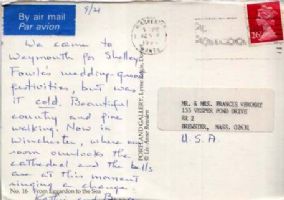 By air mail
Par avion
9/21
We came to
Weymouth for Shelley
Fowle's wedding
festivities, but was
it cold. Beautiful
country and fine
walking. Now in
Winchester, where our
room overlooks the
cathedral and the bells
are at this moment
ringing a change
No. 16 From Eggardon to the Sea
PORTLAND GALLERY
MR. & MRS. FRANCIS
155 VESPER POND DRIVE
RR 2
BREWSTER, MASS. 02631
U.S.A.